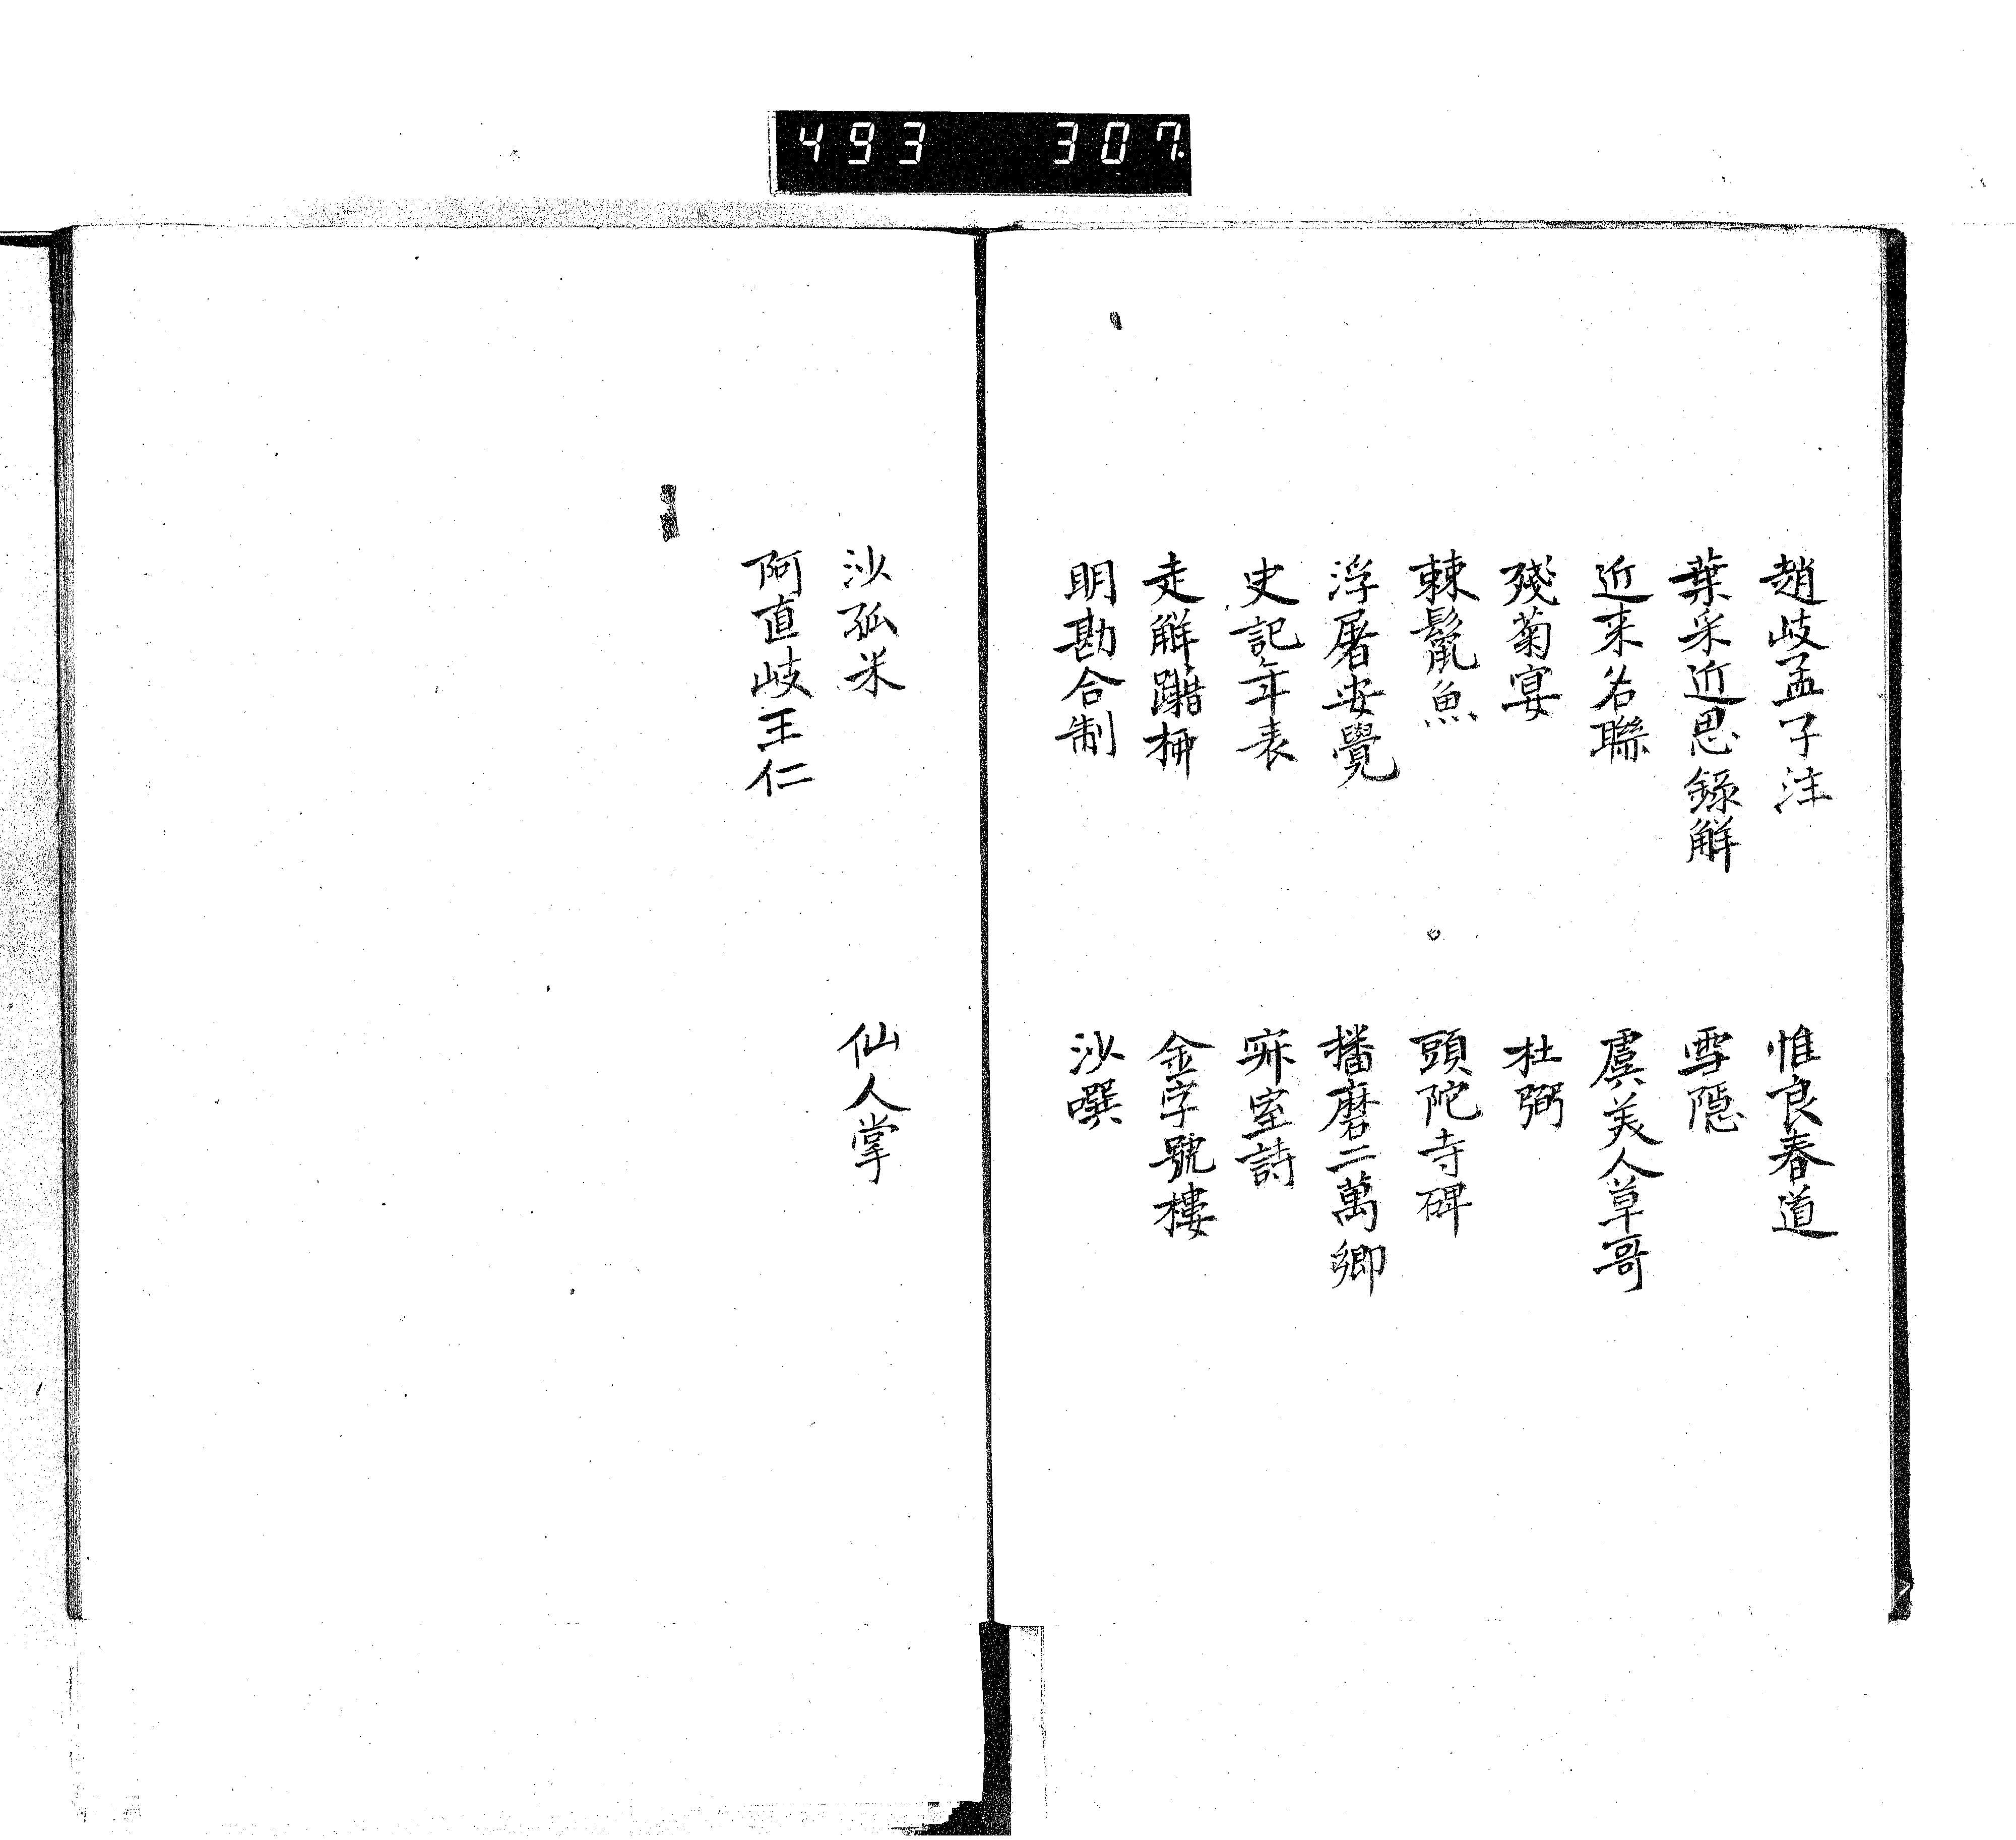 493 307.
趙岐孟子注 惟良春道
葉采近思錄解 雪隱
近来名聯 虞美人草哥
殘菊宴 杜弼
棘鬣魚 頭陀寺碑
浮屠安覺 播磨二萬鄉
史記年表 寂室詩
走解躧柳 金字號樓
明勘合制 沙噀
沙孤米 仙人掌
阿直岐王仁